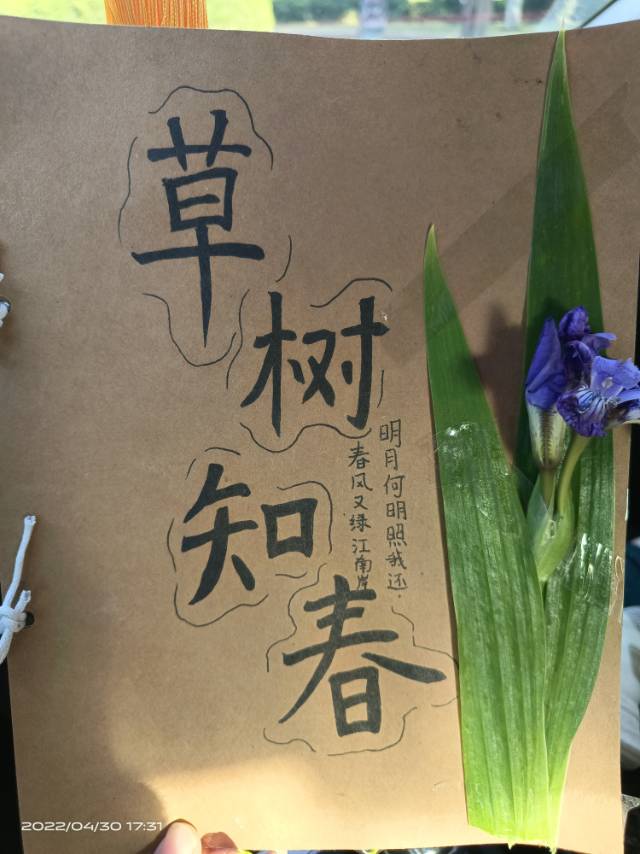 草树知春
春风又绿江南岸
明月何明照我还.
2022/04/30 17:31